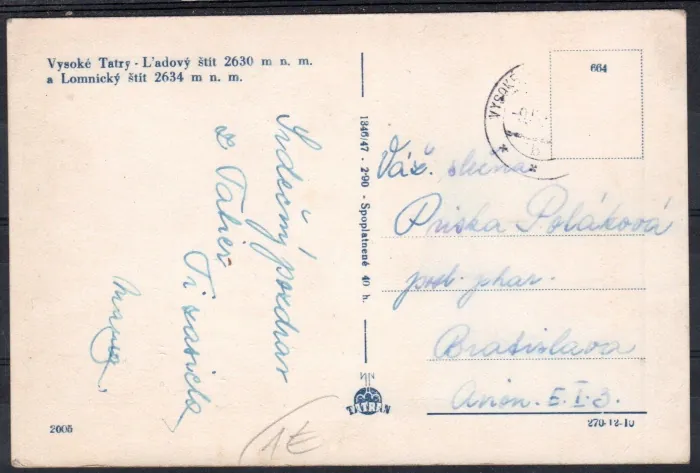 Vysoké Tatry - Ľadový štít 2630 m n. m.
a Lomnický štít 2634 m n. m.
Srdečný pozdrav
z Tatier
Ti zasiela
1346/47 · 2·90 - Spoplatnené 40 h.
TATRAN
2005
1€
VYSOKÉ
664
Váž. slečna
Priska Poláková
phar.
Bratislava
Avion. E.I.3.
270-12-10